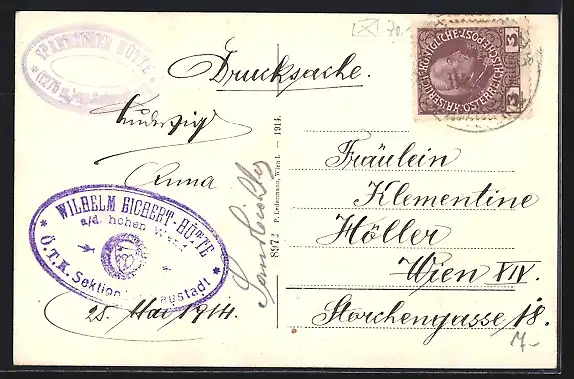 Drucksache.
HÜTTE
Ludwig
Anna
WILHELM EICHERT-HÜTTE
a/d. hohen Wand
* Ö.T.K. Sektion Neustadt *
25. Mai 1914.
8972 P. Ledermann, Wien I. - 1914.
KAISERLICHE KÖNIGLICHE ÖSTERR. POST
3 3
Fräulein
Klementine
Höller
Wien XIV.
Storchengasse 18.